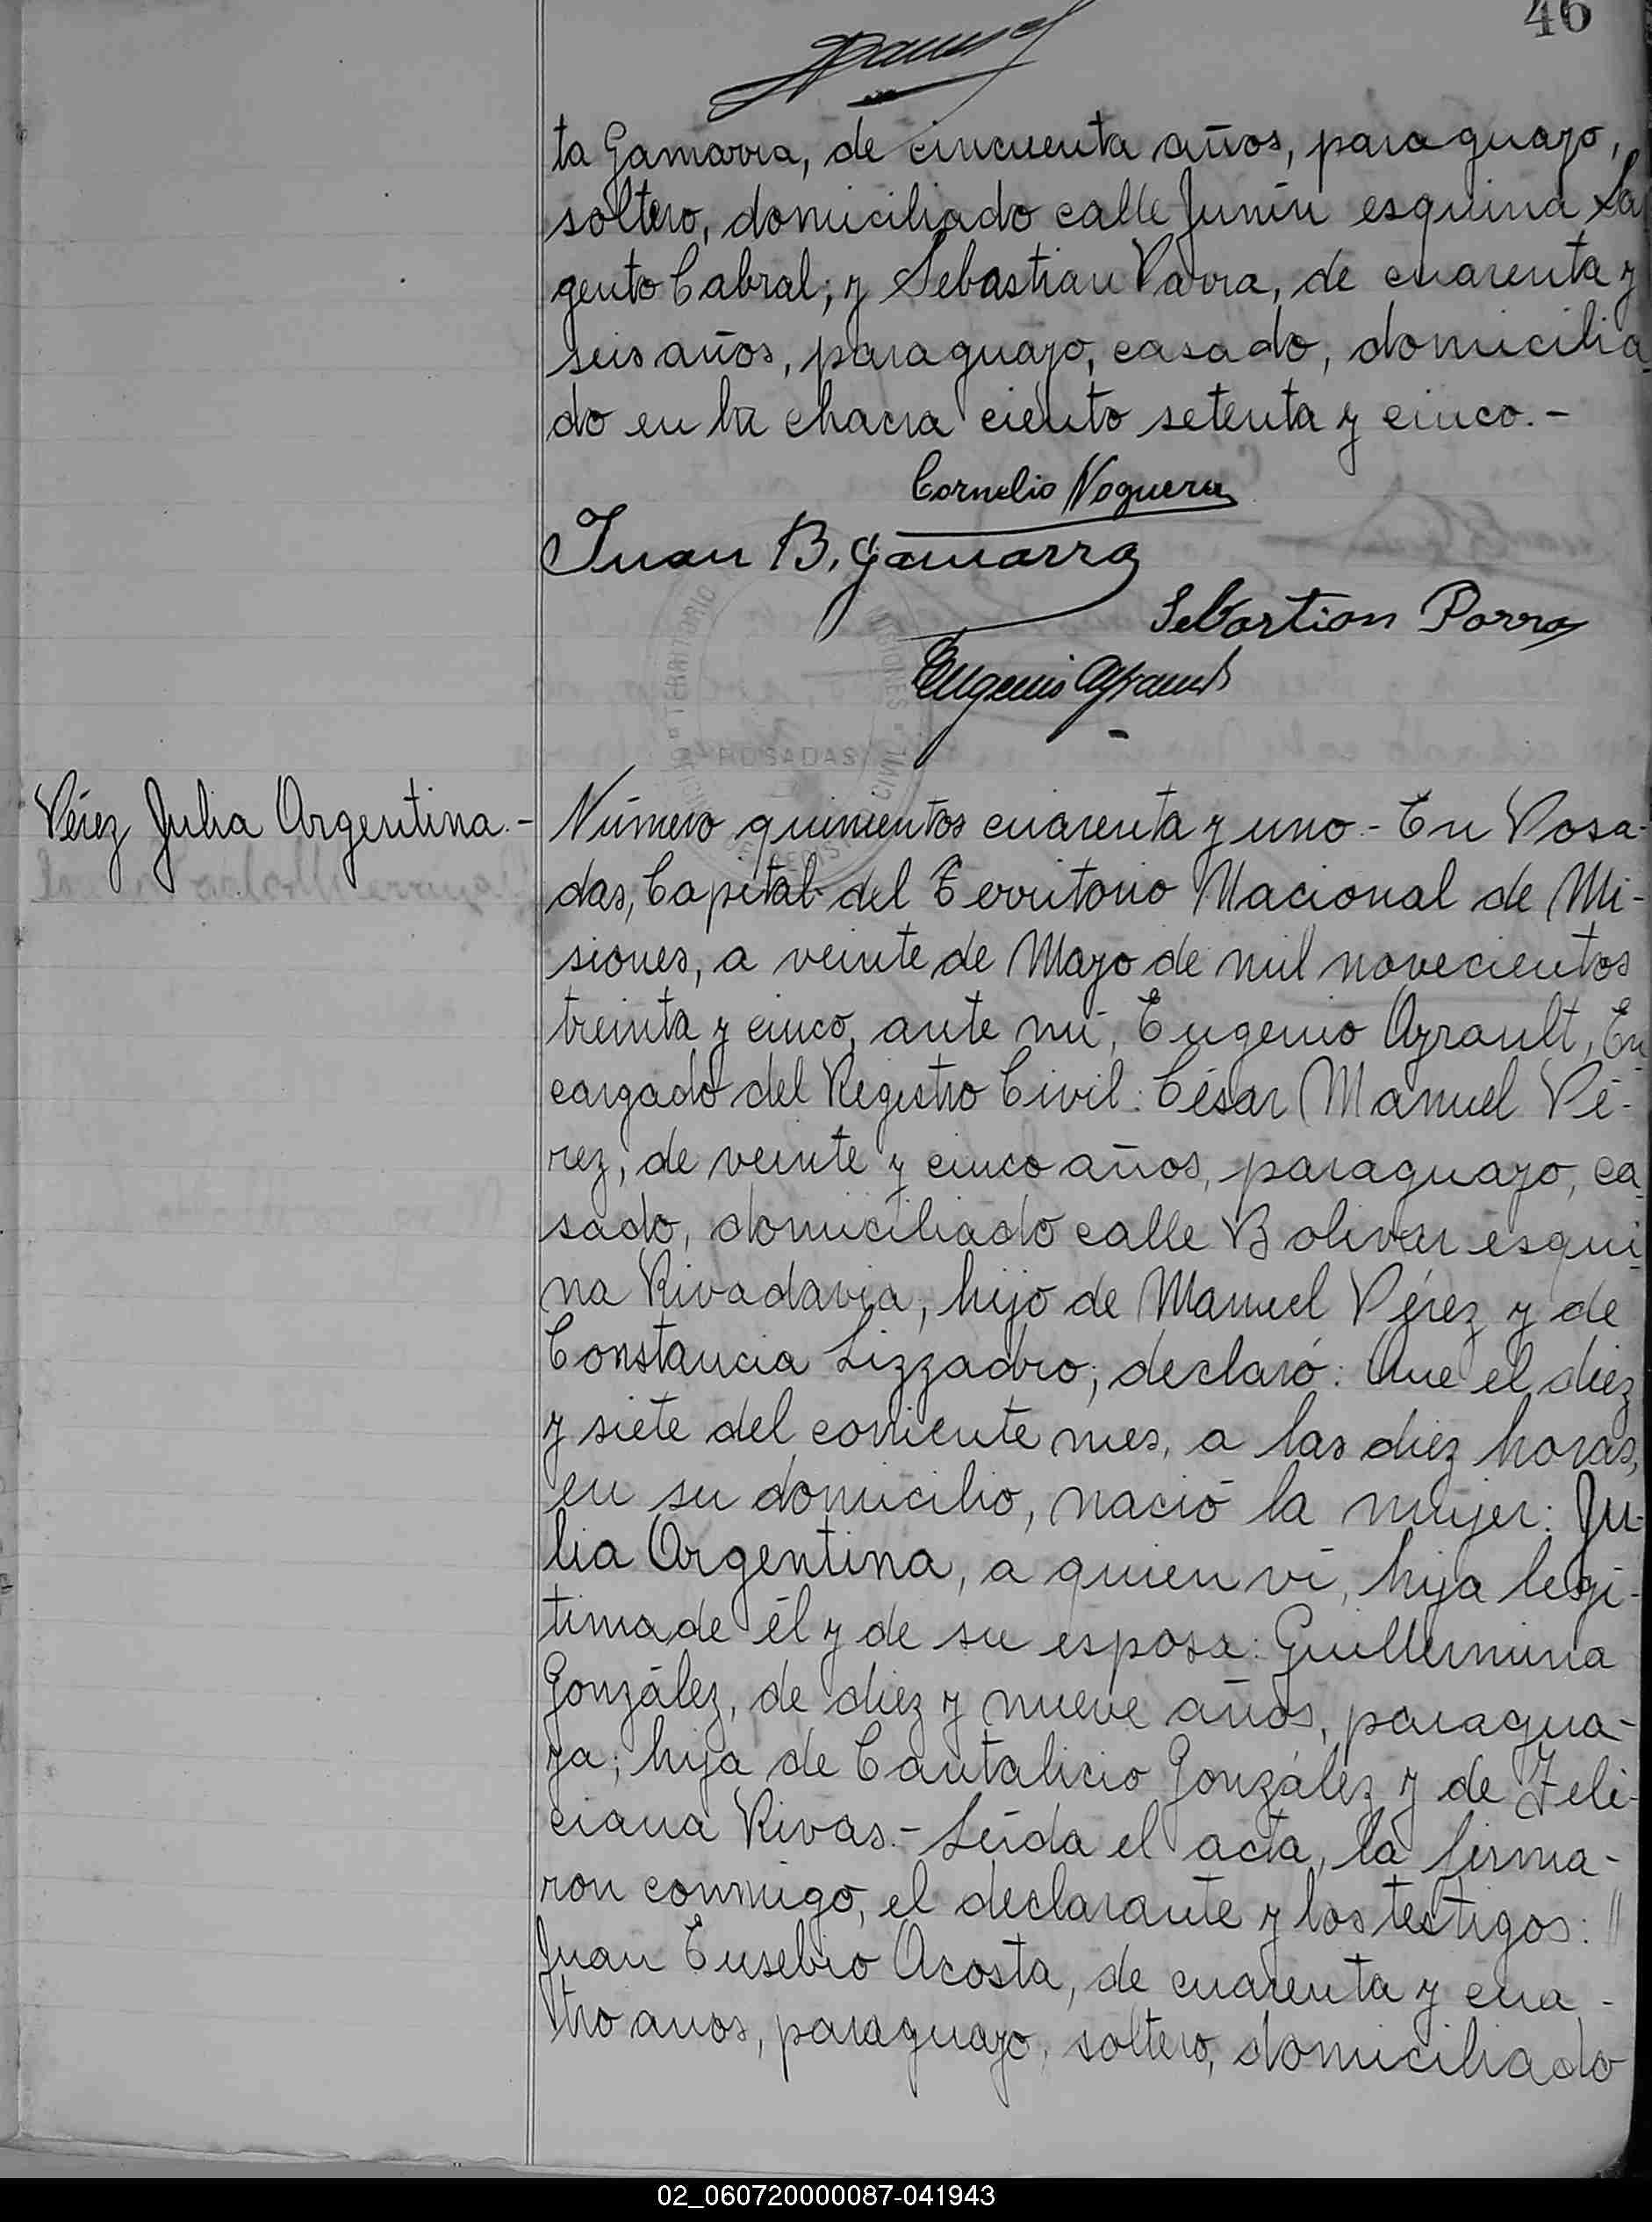 46
ta Gamarra, de cincuenta años, paraguayo,
soltero, domiciliado calle Junín esquina Sa
gento Cabral; y Sebastian Parra, de cuarenta y
seis años, paraguayo, casado, domicilia-
do en la chacra ciento setenta y cinco.-
Cornelio Noguera
Juan B. Gamarra
Sebastian Parra
Eugenio Ayrault
TERRITORIO MISIONES
POSADAS
CIVIL
Pérez Julia Argentina.-
Número quinientos cuarenta y uno.- En Posa-
das, Capital del Territorio Nacional de Mi-
siones, a veinte de Mayo de mil novecientos
treinta y cinco, ante mí, Eugenio Ayrault, En
cargado del Registro Civil: César Manuel Pé-
rez, de veinte y cinco años, paraguayo, ca-
sado, domiciliado calle Bolivar esqui-
na Rivadavia, hijo de Manuel Pérez y de
Constancia Lizzadro; declaró: Que el diez
y siete del corriente mes, a las diez horas,
en su domicilio, nació la mujer: Ju-
lia Argentina, a quien ví, hija legí-
tima de él y de su esposa: Guillermina
González, de diez y nueve años, paragua-
ya; hija de Cantalicio González y de Feli-
ciana Rivas.- Leída el acta, la firma-
ron conmigo, el declarante y los testigos: //
Juan Eusebio Acosta, de cuarenta y cua-
tro años, paraguayo, soltero, domiciliado
02_060720000087-041943